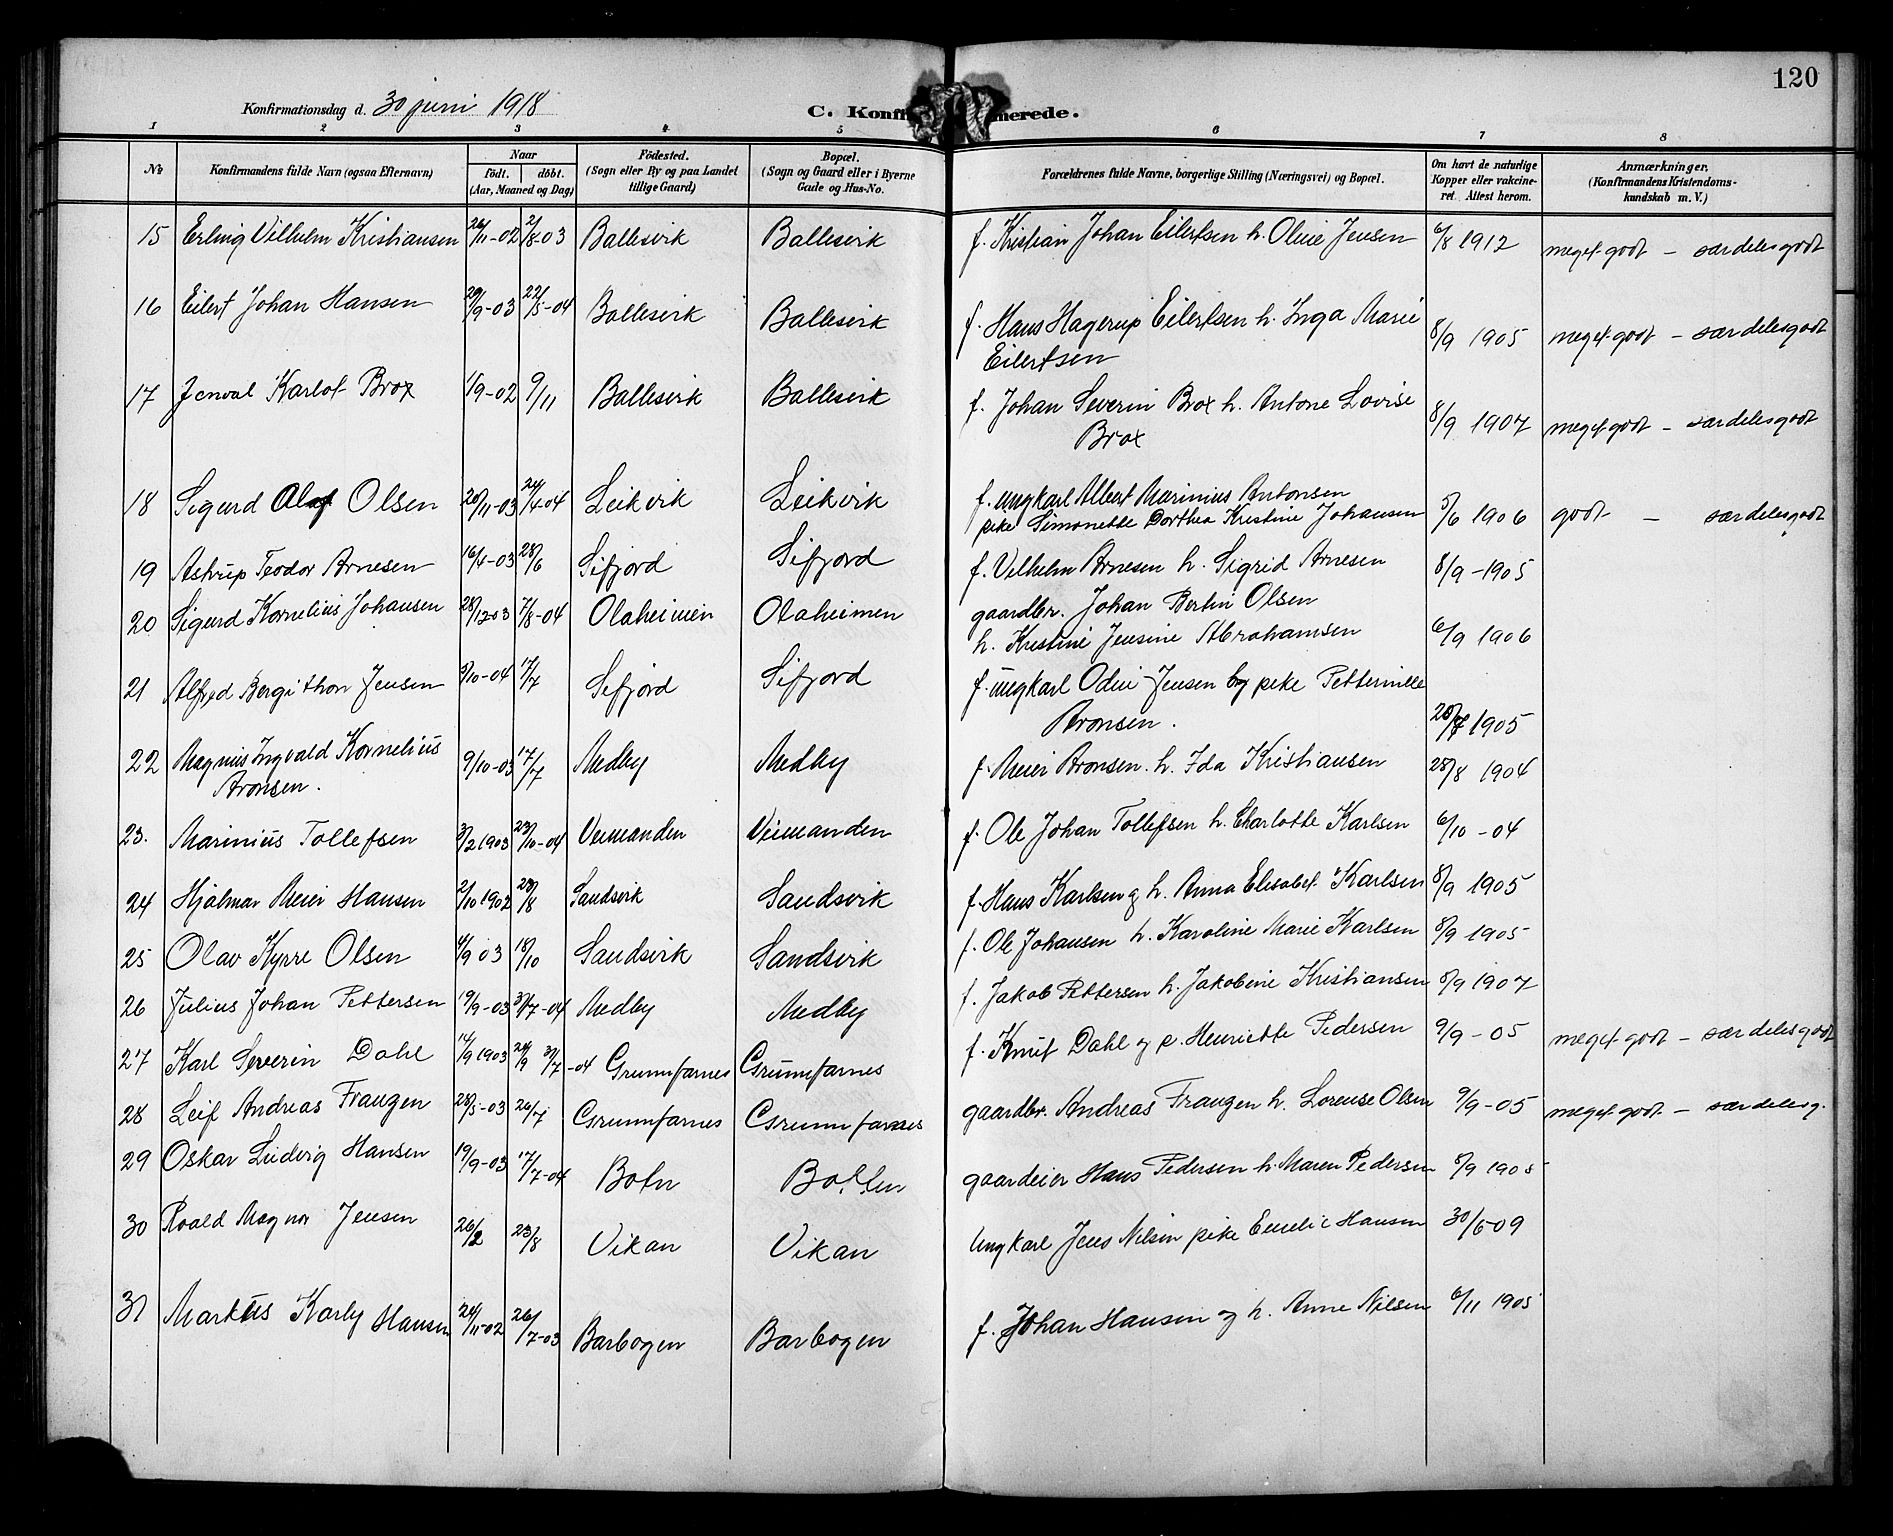 120
Konfirmationsdag d. 30 juni 1918
C. Konfi merede.
1 2 3 4 5 6 7 8
No. Konfirmandens fulde Navn (ogsaa Efternavn) Naar födt. döbt. (Aar, Maaned og Dag) Födested. (Sogn eller By og paa Landet tillige Gaard) Bopæl. (Sogn og Gaard eller i Byerne Gade og Hus-No. Forældrenes fulde Navne, borgerlige Stilling (Næringsvei) og Bopæl. Om havt de naturlige Kopper eller vakcineret. Attest herom. Anmærkninger. (Konfirmandens Kristendomskundskab m. V.)
15 Erling Vilhelm Kristiansen 26/11-02 2/8-03 Ballesvik Ballesvik f. Kristian Johan Eilertsen h. Oline Jensen 6/8 1912 meget godt - særdeles godt
16 Eilert Johan Hansen 29/9-03 22/5-04 Ballesvik Ballesvik f. Hans Hagerup Eilertsen h. Inga Marie
Eilertsen 8/9 1905 meget godt - særdeles godt
17 Jenval Karlot Brox 1/9-02 9/11 Ballesvik Ballesvik f. Johan Severin Brox h. Antone Lovise
Brox 8/9 1907 meget godt - særdeles godt
18 Sigurd Olaf Olsen 20/11-03 24/4-04 Leikvik Leikvik f. ungkarl Albert Marinius Antonsen
pike Simonette Dorthea Kristine Johansen 5/6 1906 godt - særdeles godt
19 Astrup Teodor Arnesen 16/4-03 28/6 Sifjord Sifjord f. Vilhelm Arnesen h. Sigrid Arnesen 8/9-1905
20 Sigurd Kornelius Johansen 28/12-03 7/8-04 Olaheimen Olaheimen gaardbr. Johan Bertin Olsen
h. Kristine Jensine Abrahamsen 6/9 1906
21 Alfred Bergithon Jensen 3/10-04 17/7 Sifjord Sifjord f. ungkarl Odin Jensen og pike Petternille
Aronsen. 28/7 1905
22 Magnus Ingvald Kornelius
Aronsen. 9/10-03 17/7 Medby Medby f. Meier Aronsen. h. Ida Kristiansen 28/8 1904
23. Marinius Tollefsen 3/2 1903 23/10-04 Veimanden Veimanden f. Ole Johan Tollefsen h. Charlotte Karlsen 6/10-04
24 Hjalmar Meier Hansen 2/10 1902 23/8 Sandsvik Sandsvik f. Hans Karlsen og h. Anna Elisabet Karlsen 8/9 1905
25 Olav Kyrre Olsen 4/9 03 18/10 Sandsvik Sandsvik f. Ole Johansen h. Karoline Marie Karlsen 8/9 1905
26 Julius Johan Pettersen 19/9-03 31/7-04 Medby Medby f. Jakob Pettersen h. Jakobine Kristiansen 8/9 1907
27 Karl Severin Dahl 14/9 1903 24/9 31/7-04 Grunnfarnes Grunnfarnes f. Knut Dahl og p. Henriette Pedersen 9/9-05 meget godt - særdeles godt
28 Leif Andreas Frantzen 28/5-03 26/7 Grunnfarnes Grunnfarnes gaardbr. Andreas Frantzen h. Lorense Olsen 9/9-05 meget godt - særdeles g.
29 Oskar Ludvig Hansen 19/9-03 17/7-04 Botn Botten gaardeier Hans Pedersen h. Maren Pedersen 8/9 1905
30 Roald Magnor Jensen 26/2 23/8 Vikan Vikan Ungkarl Jens Nilsen pike Emelie Hansen 30/6-09
31 Markus Karly Hansen 24/11-02 26/7-03 Barbogen Barbogen f. Johan Hansen og h. Anne Nilsen 6/11 1905